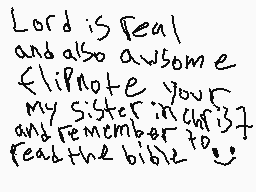 Lord is real
and also awsome
flipnote your
my sister in chris7
and remember to
read the bible